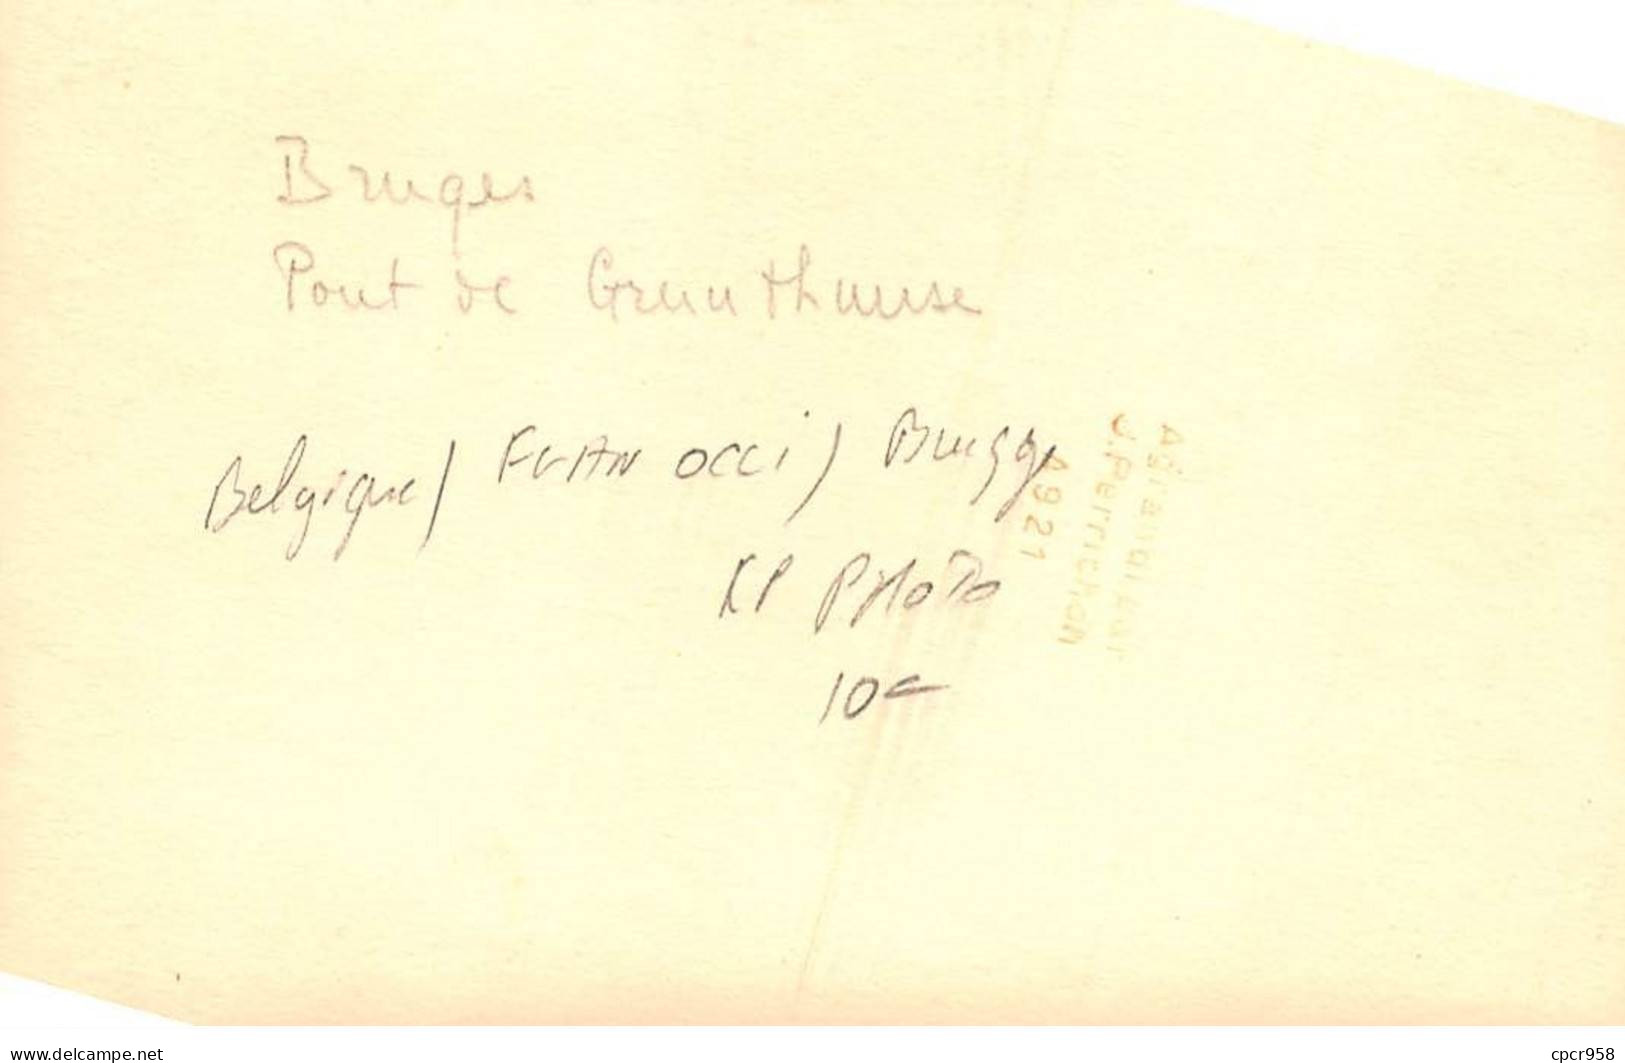 Bruges
Pont de Gruuthuuse
Belgique / FLAN OCCI / Brugge
KP PHOTO
10€
Agrandisseur
J.Perrichon
A921
www.delcampe.net
cpcr958